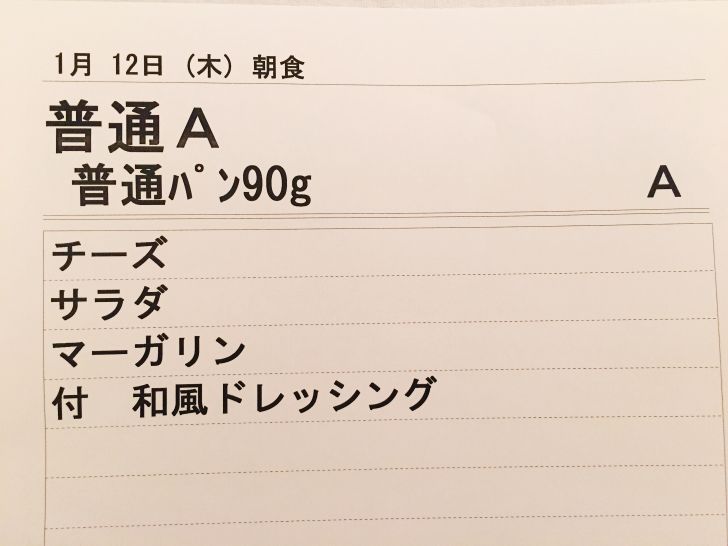 1月 12日 （木） 朝食
普通Ａ
普通ﾊﾟﾝ90g Ａ
チーズ
サラダ
マーガリン
付　和風ドレッシング